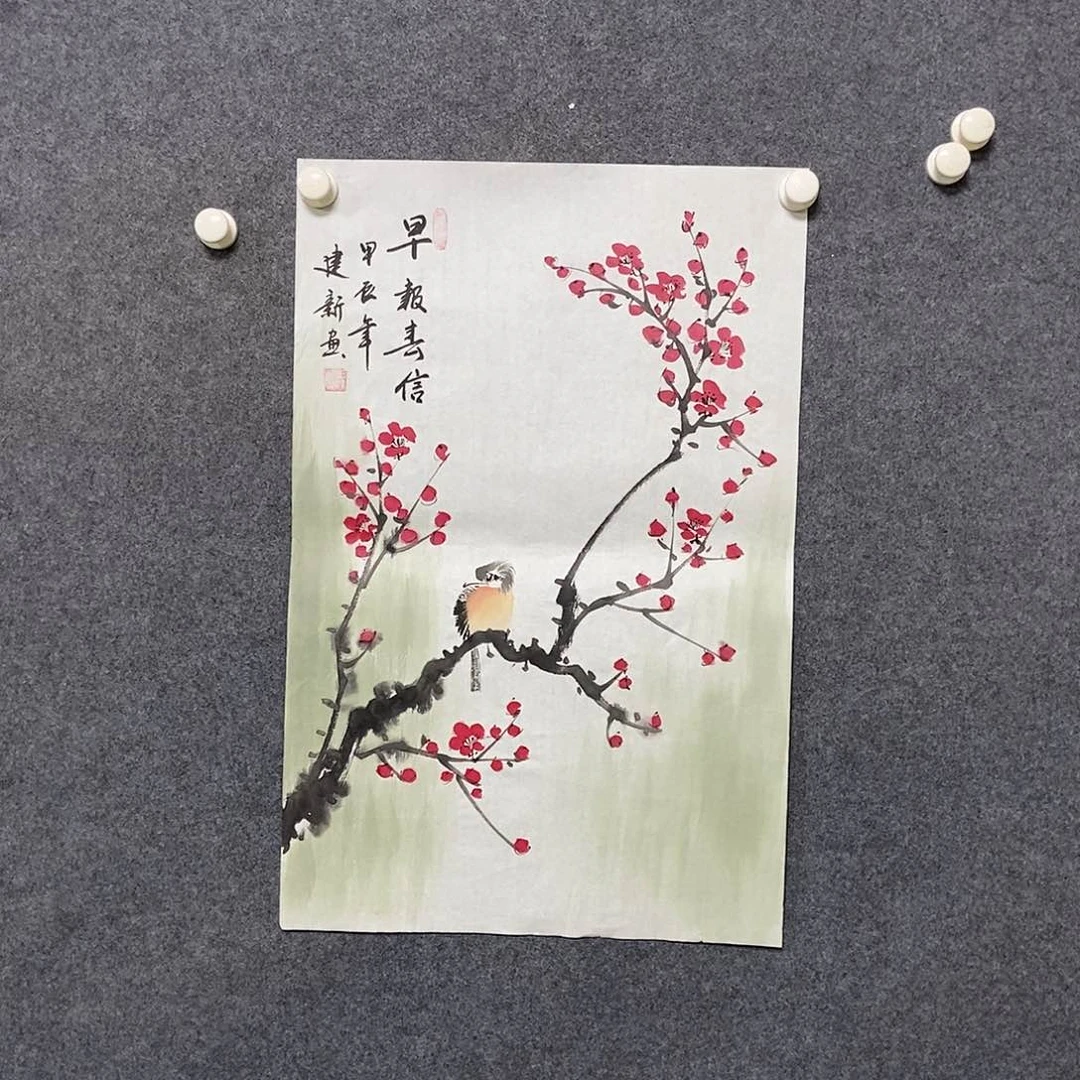 早報春信
甲辰年
建新画